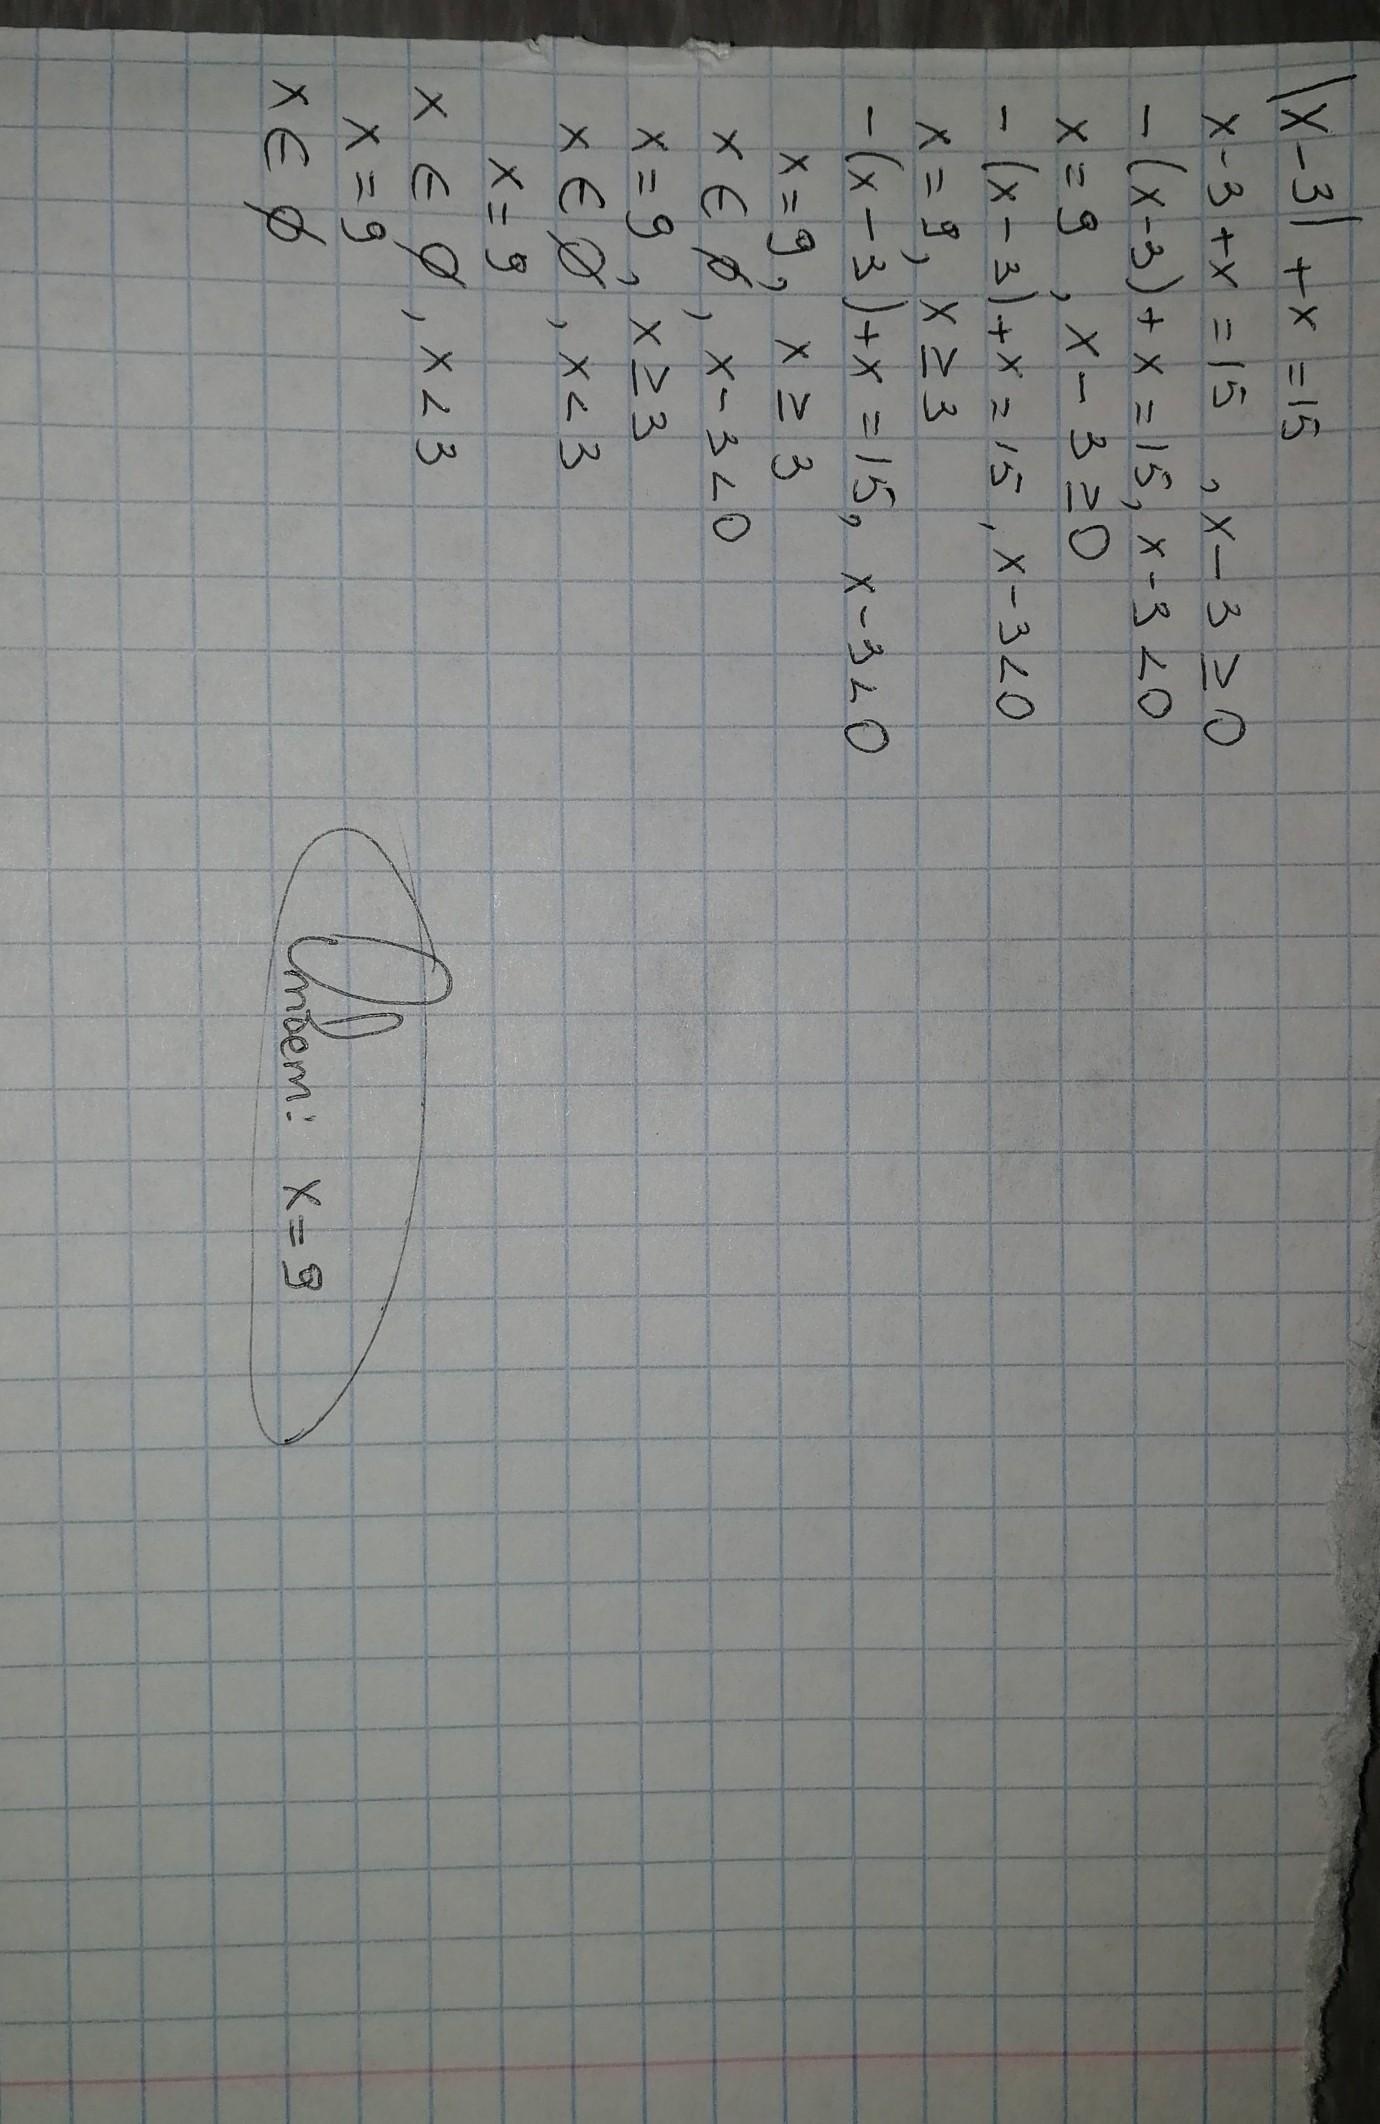 |x-3| + x = 15
x-3+x = 15 , x-3 ≥ 0
-(x-3)+x = 15, x-3 < 0
x = 9 , x-3 ≥ 0
-(x-3)+x = 15 , x-3 < 0
x = 9, x ≥ 3
-(x-3)+x = 15, x-3 < 0
x = 9, x ≥ 3
x ∈ ∅, x-3 < 0
x = 9, x ≥ 3
x ∈ ∅, x < 3
x = 9
x ∈ ∅, x < 3
x = 9
x ∈ ∅
Ответ: x = 9